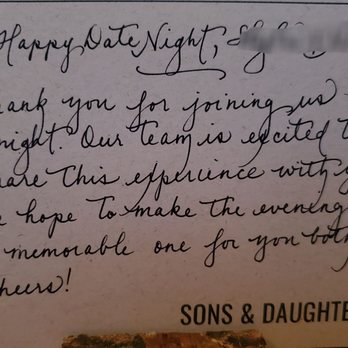 Happy Date Night,
hank you for joining us
night. Our team is excited t
hare this experience with y
e hope to make the evening
memorable one for you both
heers!
SONS & DAUGHTE